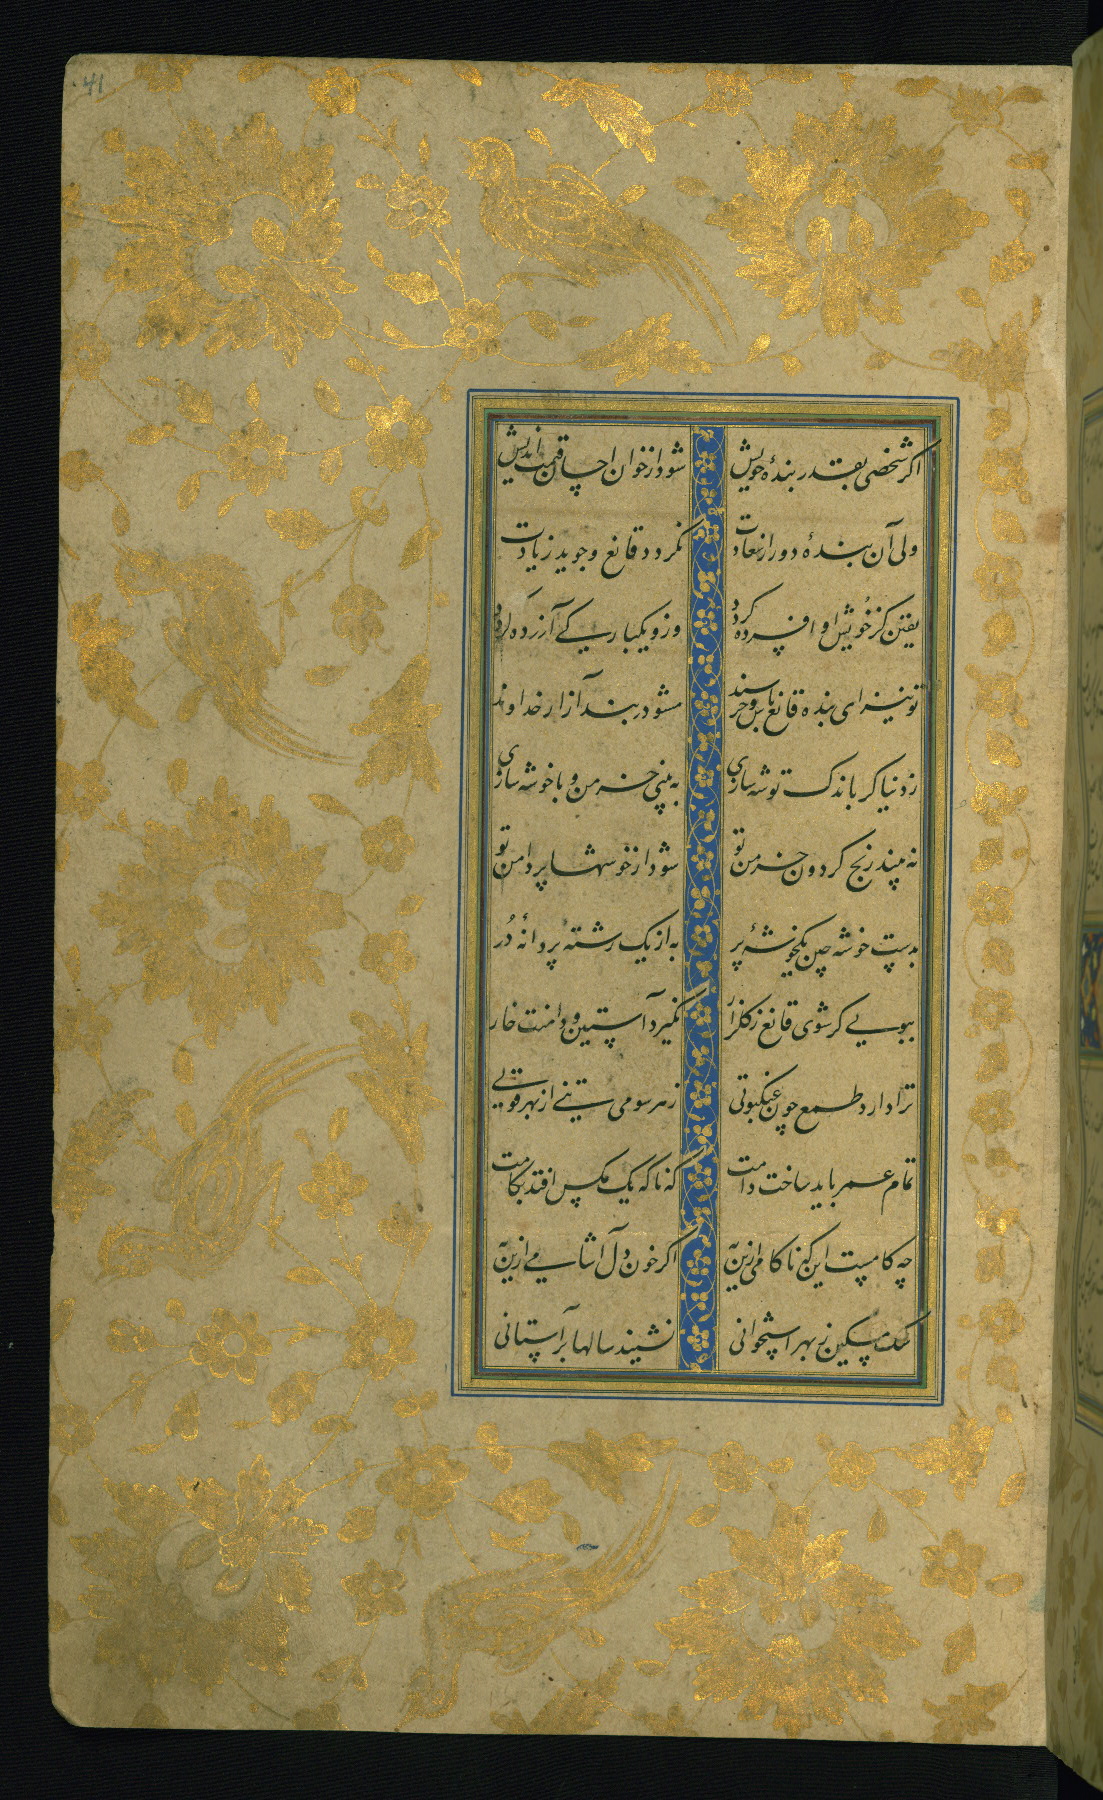 ۴۱
اکر شخصی بقدر بندهٔ خویش شود از خوان احسان قیمت اندیش
ولی آن بندهٔ دور از سعادت نکردد قانع و جوید زیادت
یقین کز خویش او افسرده کردد وزو یکبارکی آزرده کردد
تو نیز ای بنده قانع باش و خرسند مشو در بند آزار خداوند
ز دنیا کر باندک توشه سازی به بینی خرمن و با خوشه سازی
نه بیند رنج کردون خرمن تو شود از خوشها پر دامن تو
بدست خوشه چین یکخوشهٔ پر به از یک رشتهٔ پر دانهٔ در
ببویی کر شوی قانع ز کلزار نکیرد آستین و دامنت خار
ترا دارد طمع چون عنکبوتی ز هر سو می تنی از بهر قوتی
تمام عمر باید ساخت دامت که ناکه یک مکس افتد بکامت
چه کامست این که ناکامی ازین به اکر خون دل آشامی ازین به
سک مسکین ز بهر استخوانی نشیند سالها بر آستانی